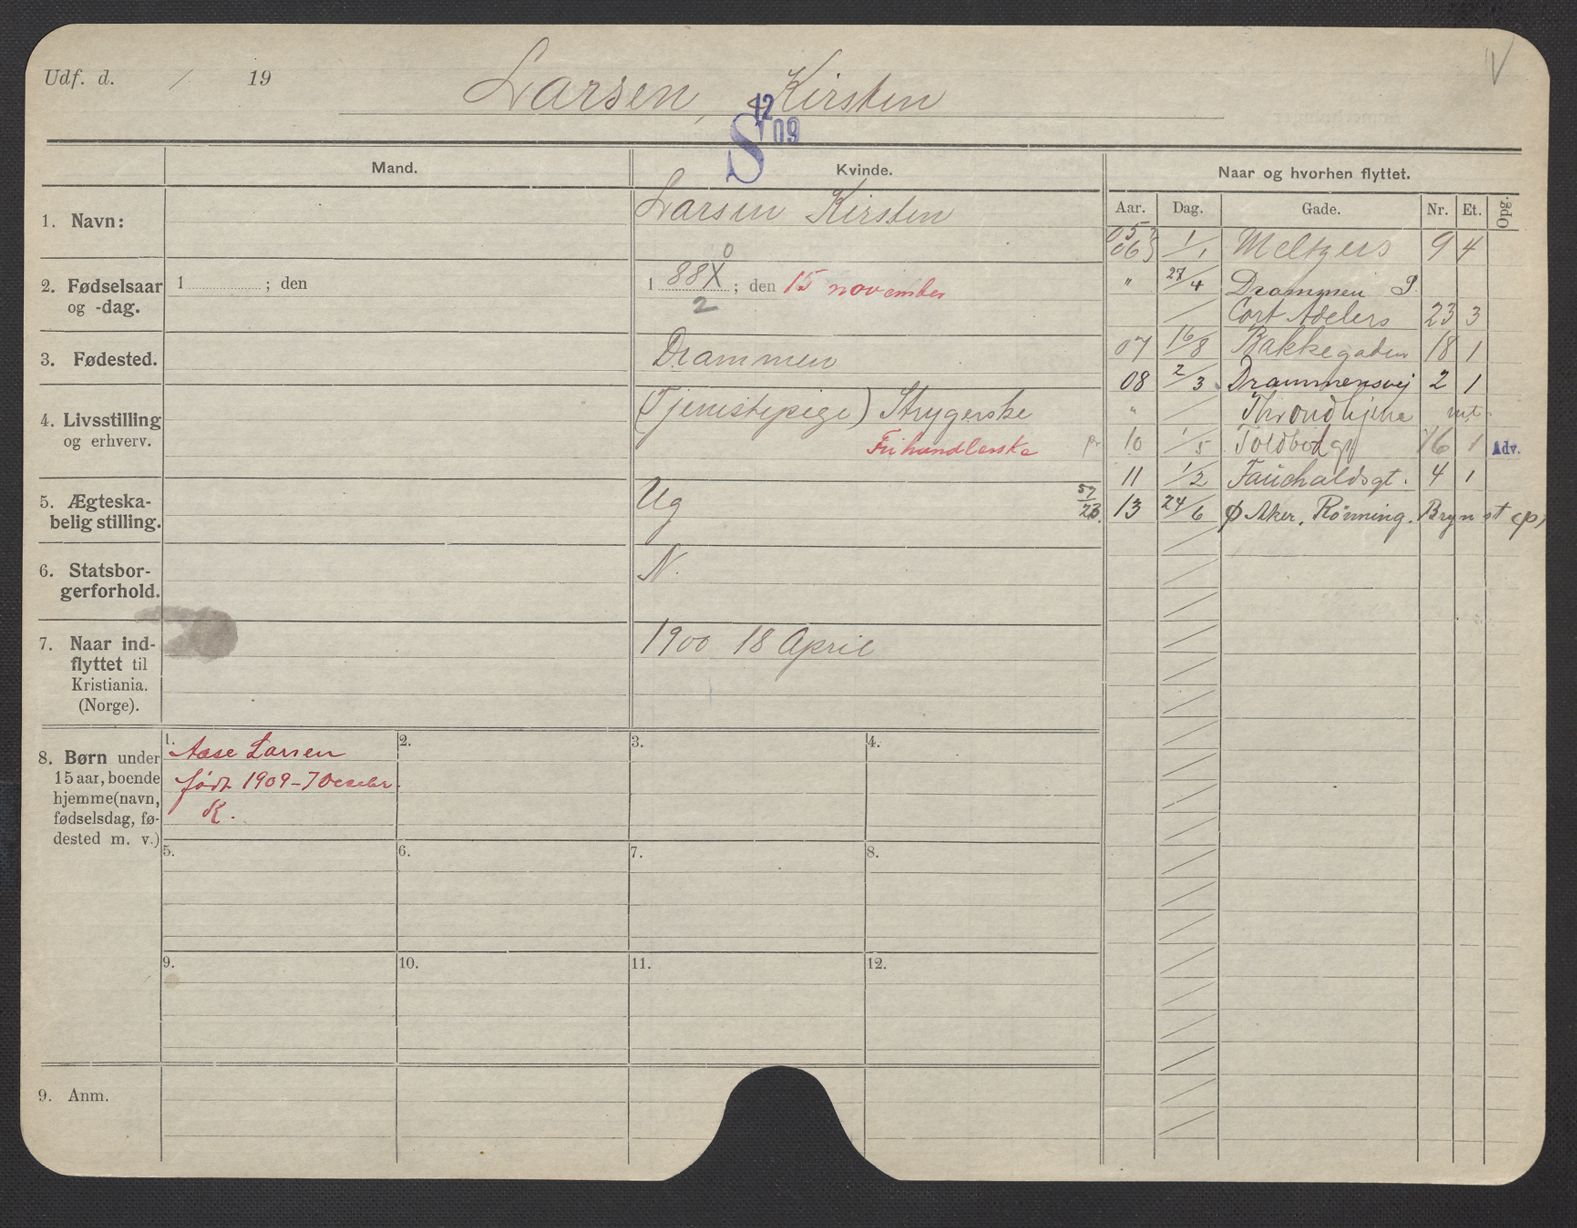 Udf. d. / 19
Larsen, Kirsten
12
S 09
Mand.
Kvinde.
Naar og hvorhen flyttet.
Aar. Dag. Gade. Nr. Et. Opg.
1. Navn:
Larsen Kirsten
2. Fødselsaar
og -dag.
1 ; den
0
1 88X ; den 15 november
2
3. Fødested.
Drammen
4. Livsstilling
og erhverv.
(Tjenestepige) Strygerske
Frihandlerske
5. Ægteska-
belig stilling.
Ug
6. Statsbor-
gerforhold.
N.
7. Naar ind-
flyttet til
Kristiania.
(Norge).
1900 18 April
05
06 1/1 Meltzers 9 4
" 27/4 Drammen S.
/ Cort Adelers 23 3
07 16/8 Bakkegaden 18 1
08 2/3 Drammensvej 2 1
" / Throndhjem
pr 10 1/5 Toldbodgt 16 1 Adv.
11 1/2 Fauchaldsgt. 4 1
57/23. 13 24/6 Ø Aker, Rönning. Bryn st (p)
8. Børn under
15 aar, boende
hjemme (navn,
fødselsdag, fø-
dested m. v.)
1. Aase Larsen
født 1909 - 7 Decebr.
K.
2.
3.
4.
5.
6.
7.
8.
9.
10.
11.
12.
9. Anm.